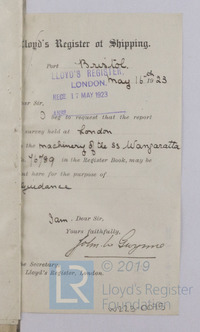 Lloyd's Register of Shipping.
Port Bristol,
May 16th 1923
LLOYD'S REGISTER,
LONDON.
RECD 17 MAY 1923
Dear Sir,
I beg to request that the report
survey held at London
the machinery of the SS Wangaratta
in the Register Book, may be
sent here for the purpose of
guidance
I am, Dear Sir,
Yours faithfully,
John W Gwynne
The Secretary
Lloyd's Register, London.
© 2019
LR
Lloyd's Register
Foundation